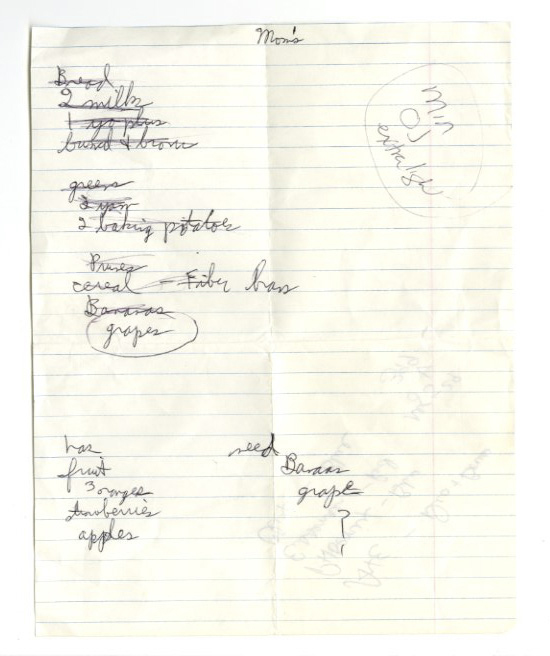 Mom's
Bread
2 milks
1 yo plus
greens
2 yam
2 baking potatoes
Prunes
cereal - Fiber bars
Bananas
grapes
Min
OJ
has
fruit
3 oranges
strawberries
apples
need
Banans
grape
?